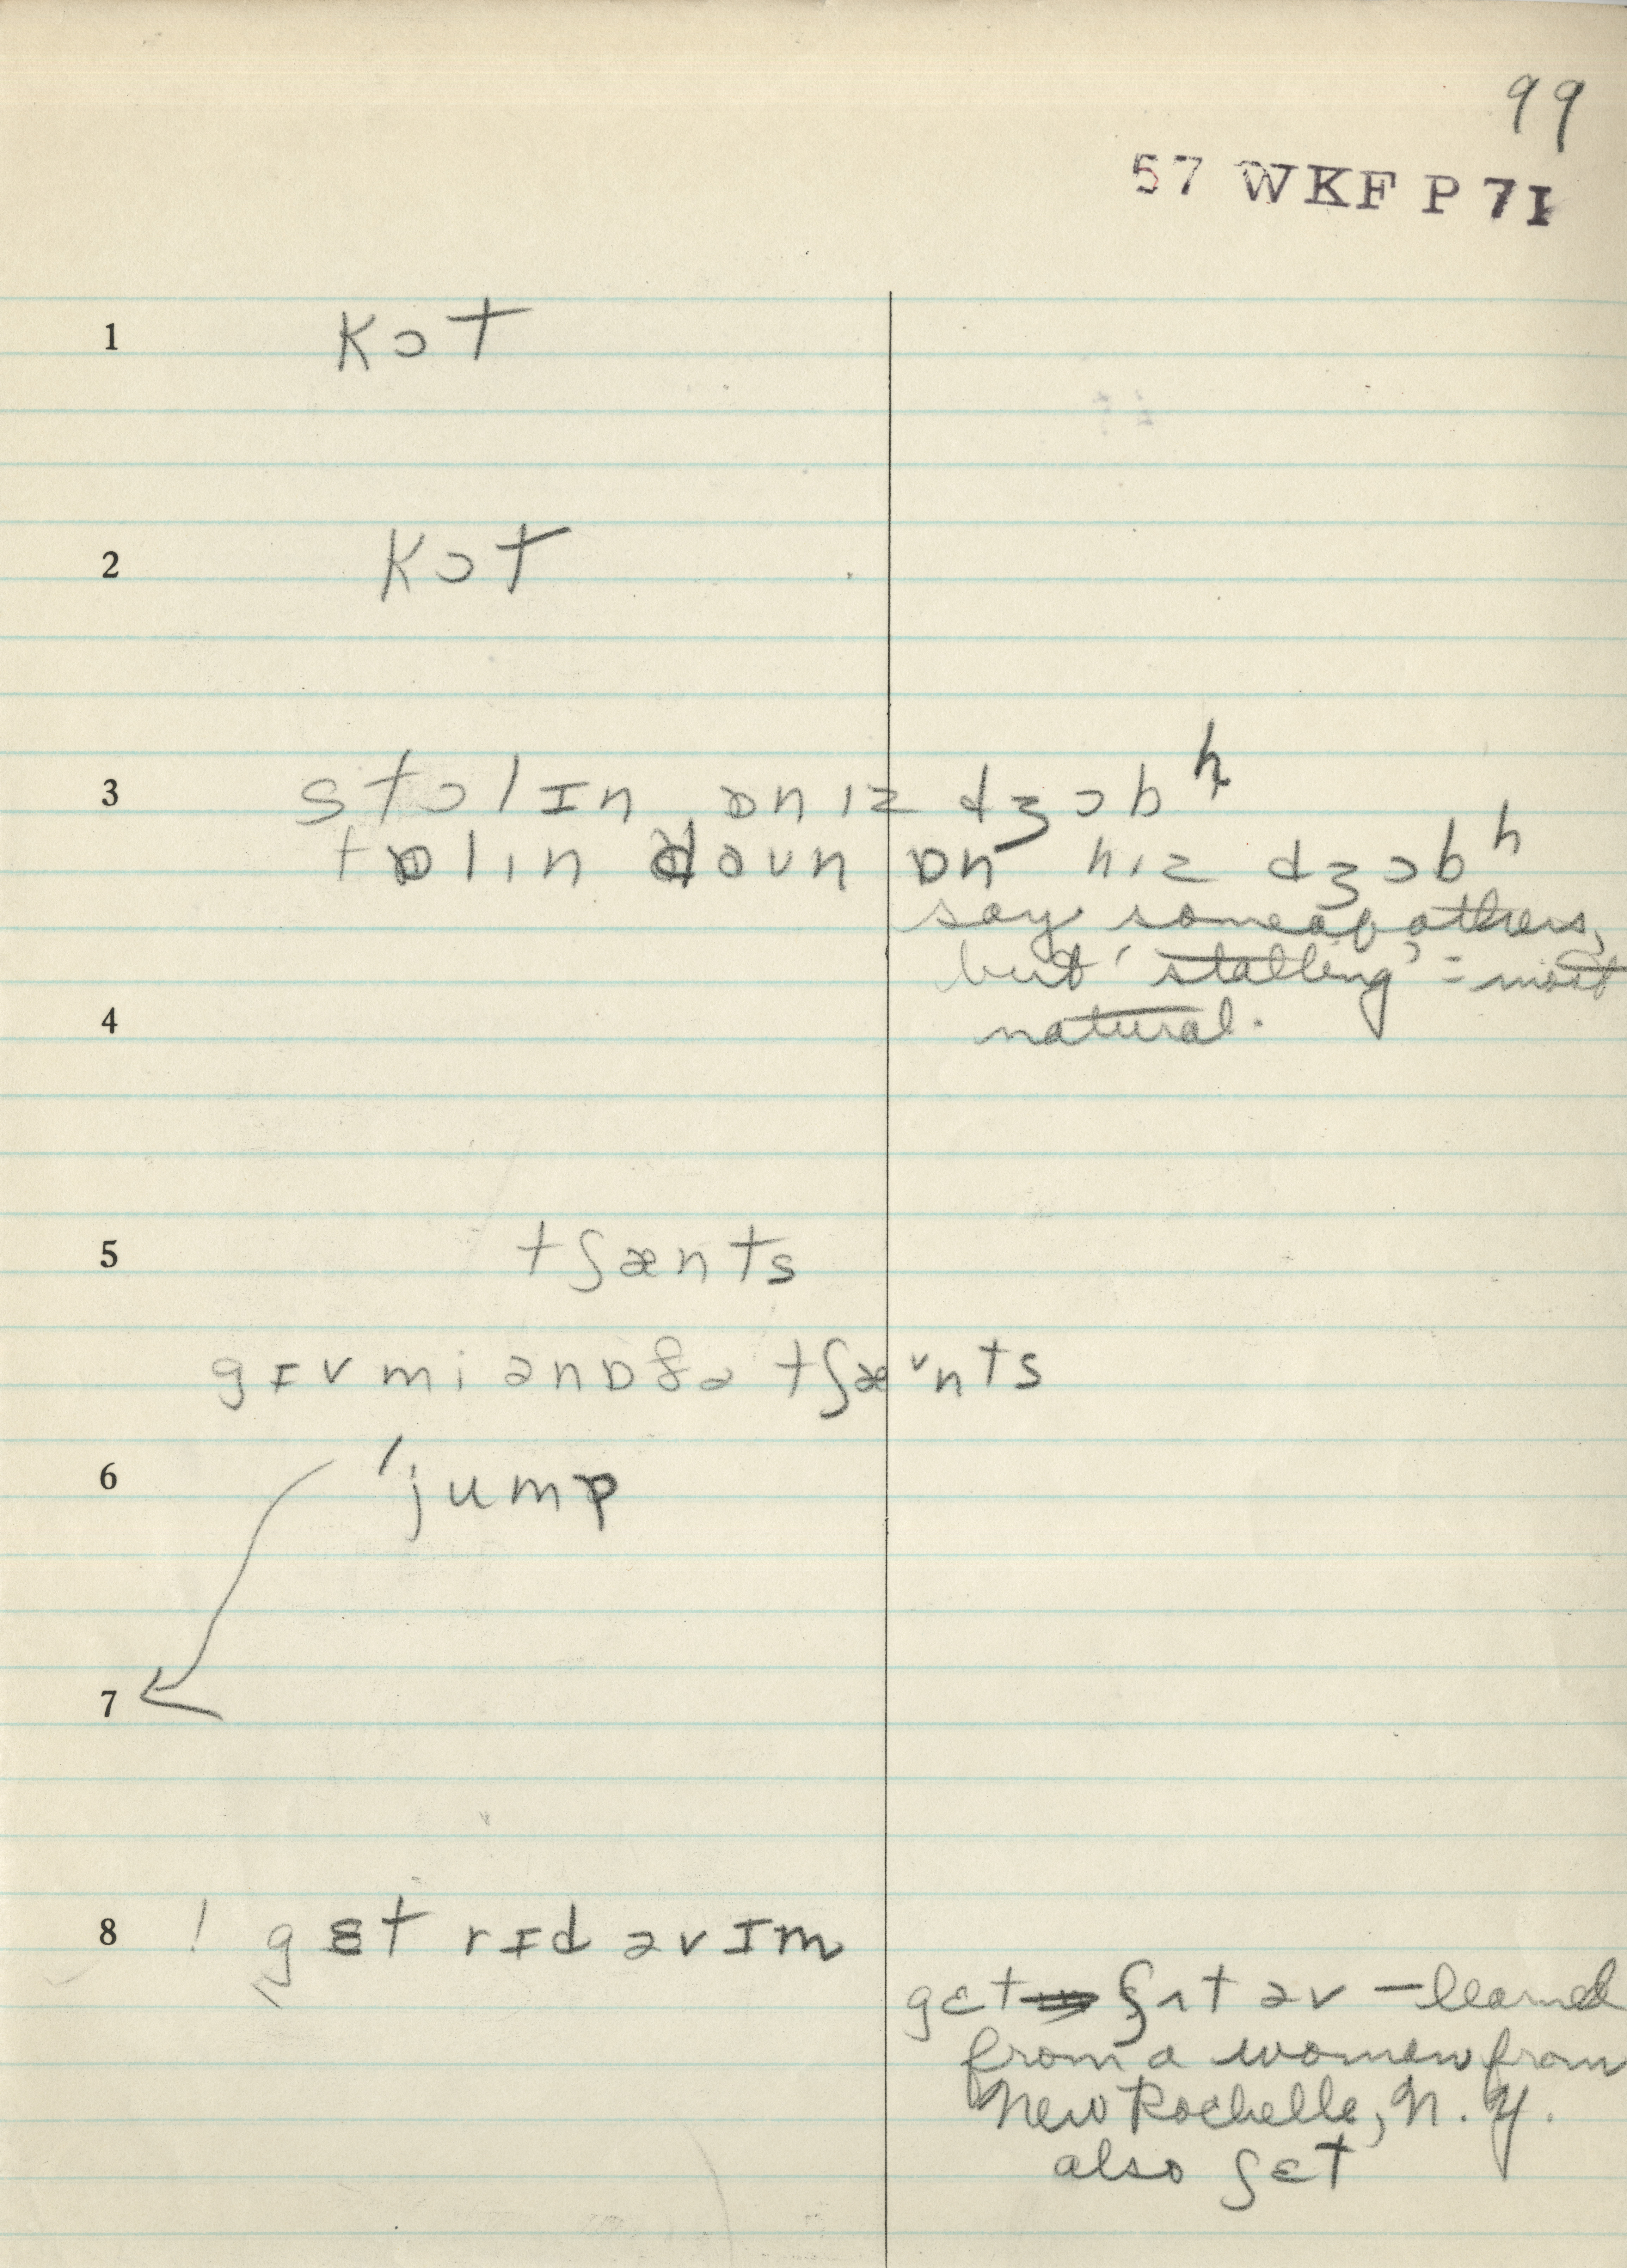 99
57 WKF P 71
1 kɔt
2 kɔt
3 stɔlɪn ɒn ɪz dʒɔb h
tɒlin daun ɒn hiz dʒɔb h
say some of others,
but 'stalling' = most
4 natural.
5 tʃænts
gɪv mi ən ɒðə tʃæ˅nts
6 'jump
7
8 ! gɛt rɪd əv ɪm
gɛt ʃʌt əv – learned
from a women from
New Rochelle, N.Y.
also ʃɛt